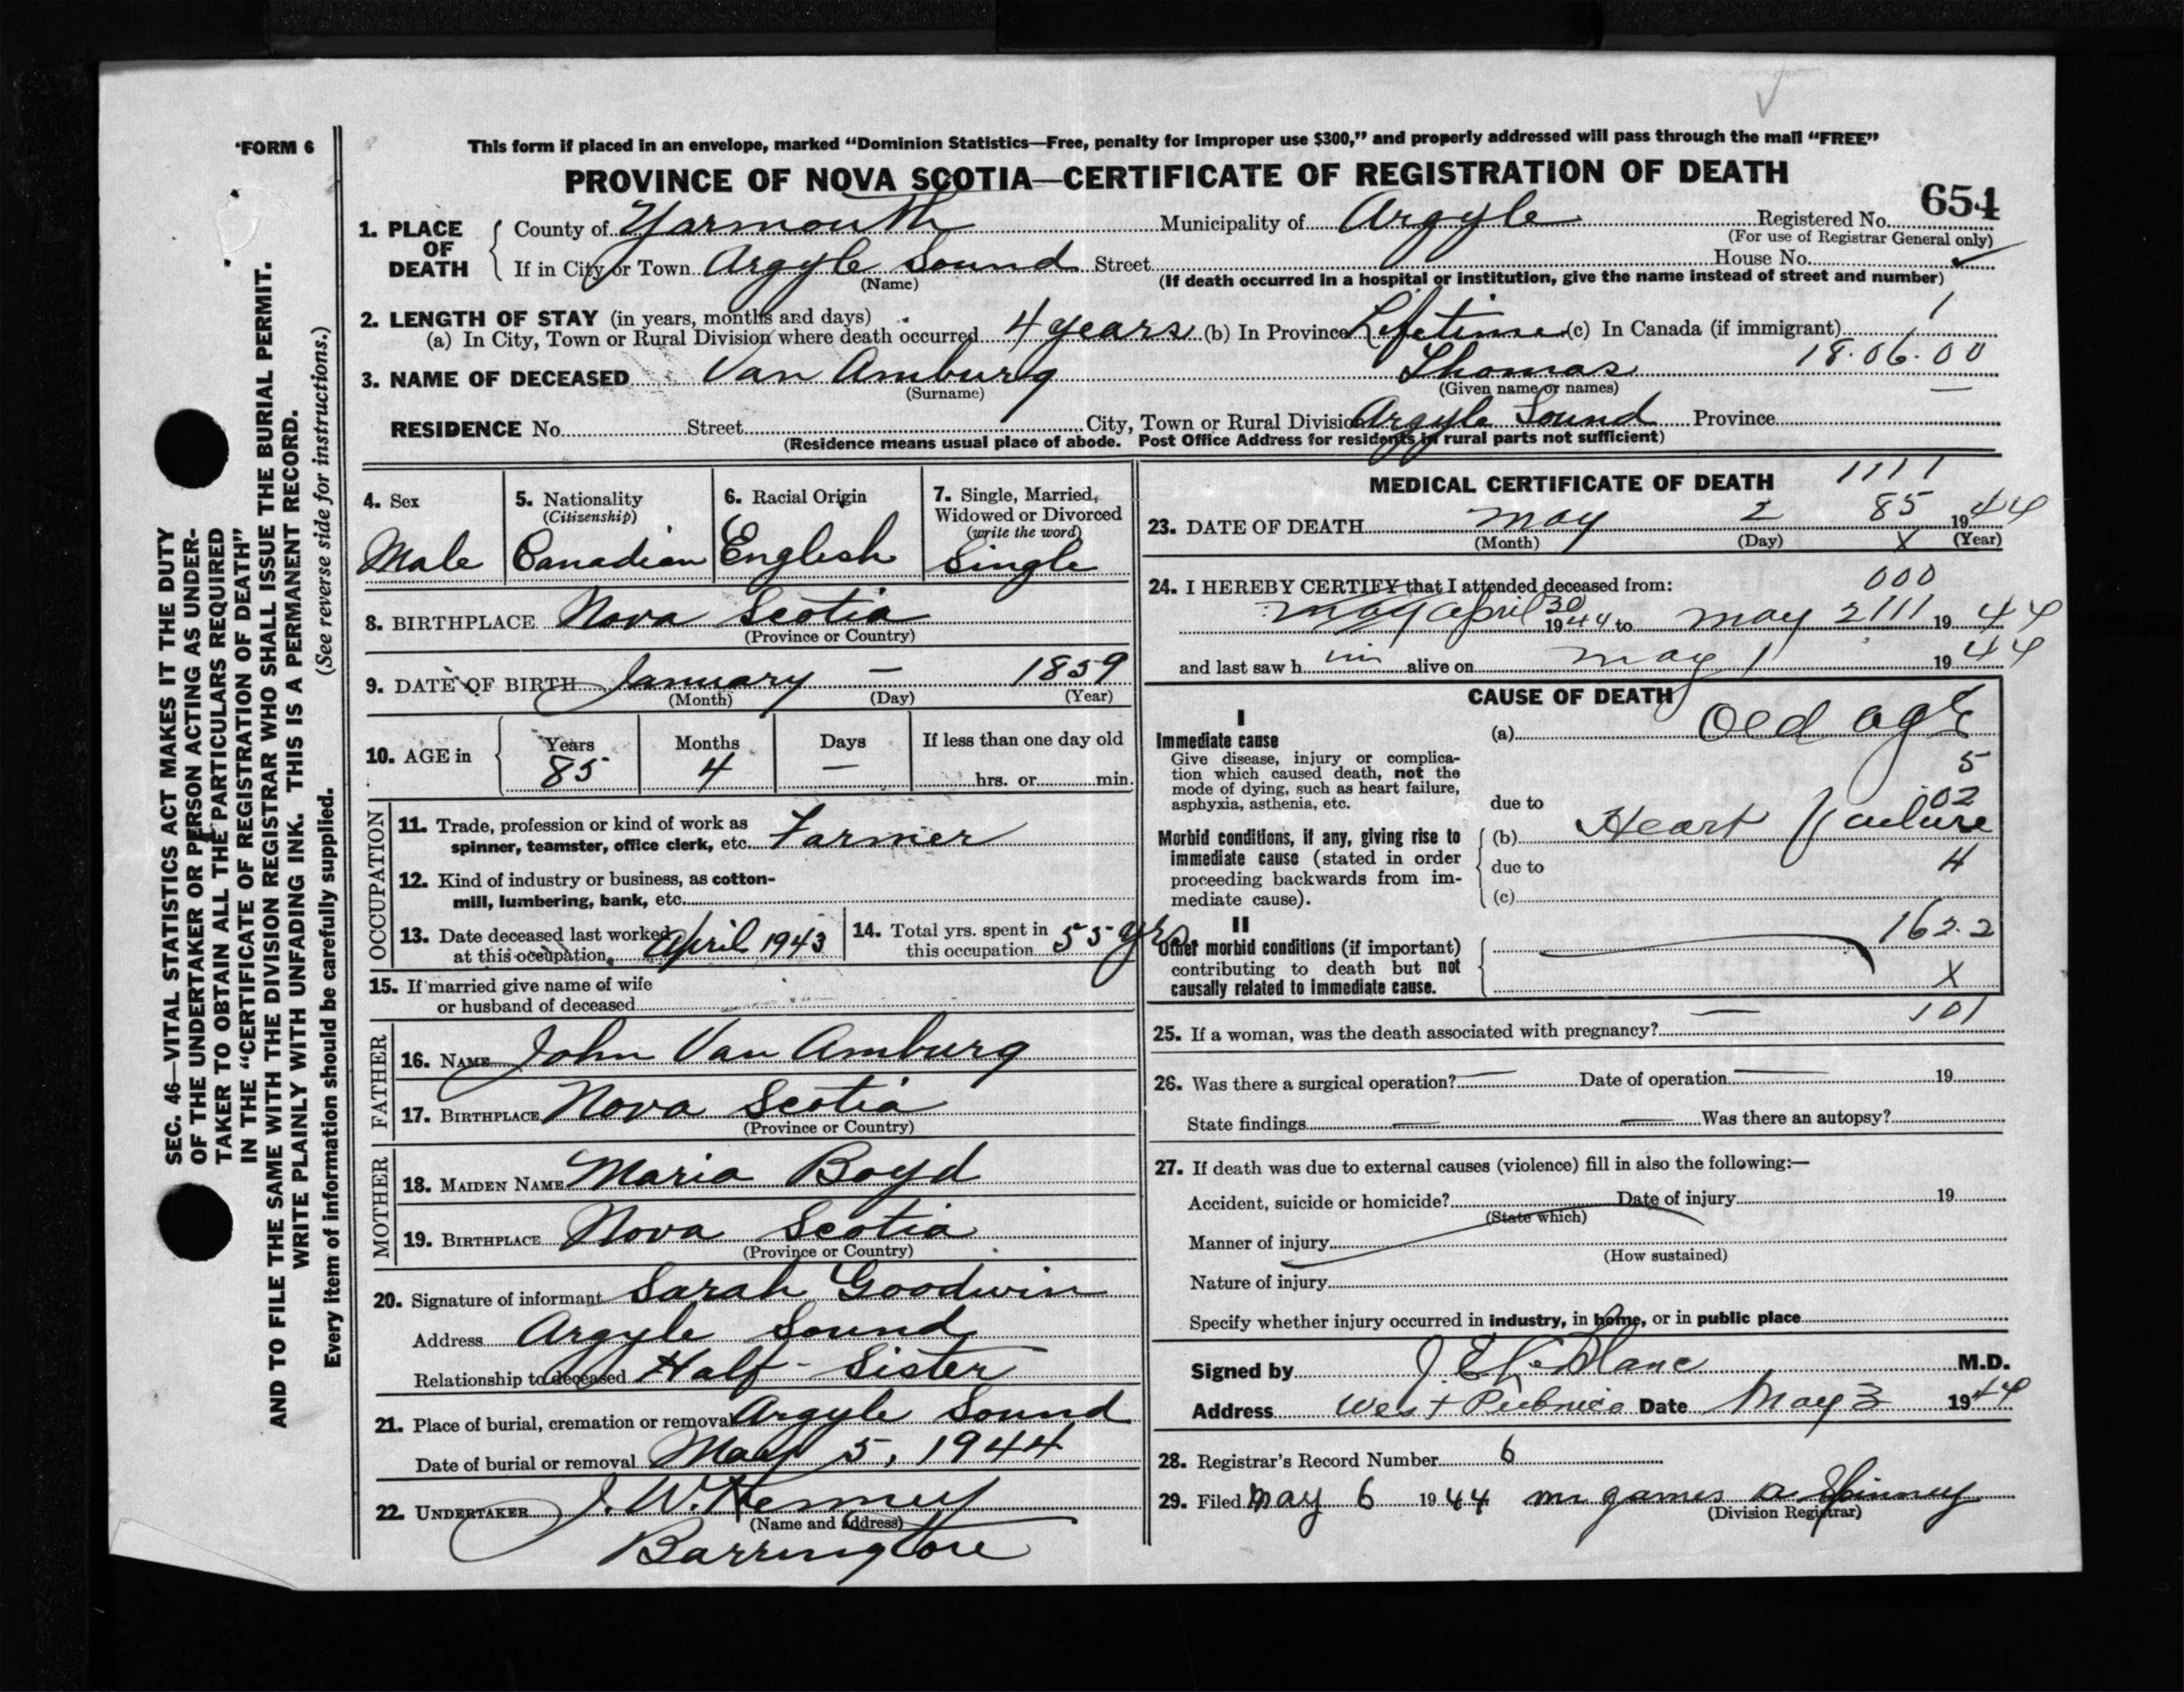 FORM 6
This form if placed in an envelope, marked “Dominion Statistics—Free, penalty for improper use $300,” and properly addressed will pass through the mail “FREE”
PROVINCE OF NOVA SCOTIA—CERTIFICATE OF REGISTRATION OF DEATH
654
1. PLACE OF DEATH County of Yarmouth Municipality of Argyle Registered No.
(For use of Registrar General only)
If in City or Town Argyle Sound Street House No.
(Name) (If death occurred in a hospital or institution, give the name instead of street and number)
2. LENGTH OF STAY (in years, months and days)
(a) In City, Town or Rural Division where death occurred 4 years (b) In Province Lifetime (c) In Canada (if immigrant)
18.06.00
3. NAME OF DECEASED Van Amburg Thomas
(Surname) (Given name or names)
RESIDENCE No. Street City, Town or Rural Division Argyle Sound Province
(Residence means usual place of abode. Post Office Address for residents in rural parts not sufficient)
SEC. 46—VITAL STATISTICS ACT MAKES IT THE DUTY
OF THE UNDERTAKER OR PERSON ACTING AS UNDER-
TAKER TO OBTAIN ALL THE PARTICULARS REQUIRED
IN THE “CERTIFICATE OF REGISTRATION OF DEATH”
AND TO FILE THE SAME WITH THE DIVISION REGISTRAR WHO SHALL ISSUE THE BURIAL PERMIT.
WRITE PLAINLY WITH UNFADING INK. THIS IS A PERMANENT RECORD.
Every item of information should be carefully supplied. (See reverse side for instructions.)
4. Sex 5. Nationality 6. Racial Origin 7. Single, Married,
(Citizenship) Widowed or Divorced
(write the word)
Male Canadian English Single
8. BIRTHPLACE Nova Scotia
(Province or Country)
9. DATE OF BIRTH January — 1859
(Month) (Day) (Year)
10. AGE in Years Months Days If less than one day old
85 4 — hrs. or min.
OCCUPATION
11. Trade, profession or kind of work as
spinner, teamster, office clerk, etc. Farmer
12. Kind of industry or business, as cotton-
mill, lumbering, bank, etc.
13. Date deceased last worked
at this occupation April 1943
14. Total yrs. spent in
this occupation 55 yrs
15. If married give name of wife
or husband of deceased
FATHER
16. NAME John Van Amburg
17. BIRTHPLACE Nova Scotia
(Province or Country)
MOTHER
18. MAIDEN NAME Maria Boyd
19. BIRTHPLACE Nova Scotia
(Province or Country)
20. Signature of informant Sarah Goodwin
Address Argyle Sound
Relationship to deceased Half-Sister
21. Place of burial, cremation or removal Argyle Sound
Date of burial or removal May 5, 1944
22. UNDERTAKER J. W. Kenney
(Name and address)
Barrington
MEDICAL CERTIFICATE OF DEATH 1111
23. DATE OF DEATH May 2 85 1944
(Month) (Day) X (Year)
24. I HEREBY CERTIFY that I attended deceased from: 000
may april 30 1944 to may 2 111 1944
and last saw him alive on may 1 1944
CAUSE OF DEATH
I
Immediate cause
Give disease, injury or complica-
tion which caused death, not the
mode of dying, such as heart failure,
asphyxia, asthenia, etc.
(a) Old age
5
due to
02
Morbid conditions, if any, giving rise to
immediate cause (stated in order
proceeding backwards from im-
mediate cause).
(b) Heart Failure
due to 4
(c)
II
Other morbid conditions (if important)
contributing to death but not
causally related to immediate cause.
162.2
X
101
25. If a woman, was the death associated with pregnancy? —
26. Was there a surgical operation? — Date of operation — 19
State findings — — Was there an autopsy?
27. If death was due to external causes (violence) fill in also the following:—
Accident, suicide or homicide? Date of injury 19
(State which)
Manner of injury
(How sustained)
Nature of injury
Specify whether injury occurred in industry, in home, or in public place
Signed by J. E. LeBlanc M.D.
Address West Pubnico Date May 3 1944
28. Registrar's Record Number 6
29. Filed May 6 1944 Mr James A Spinney
(Division Registrar)